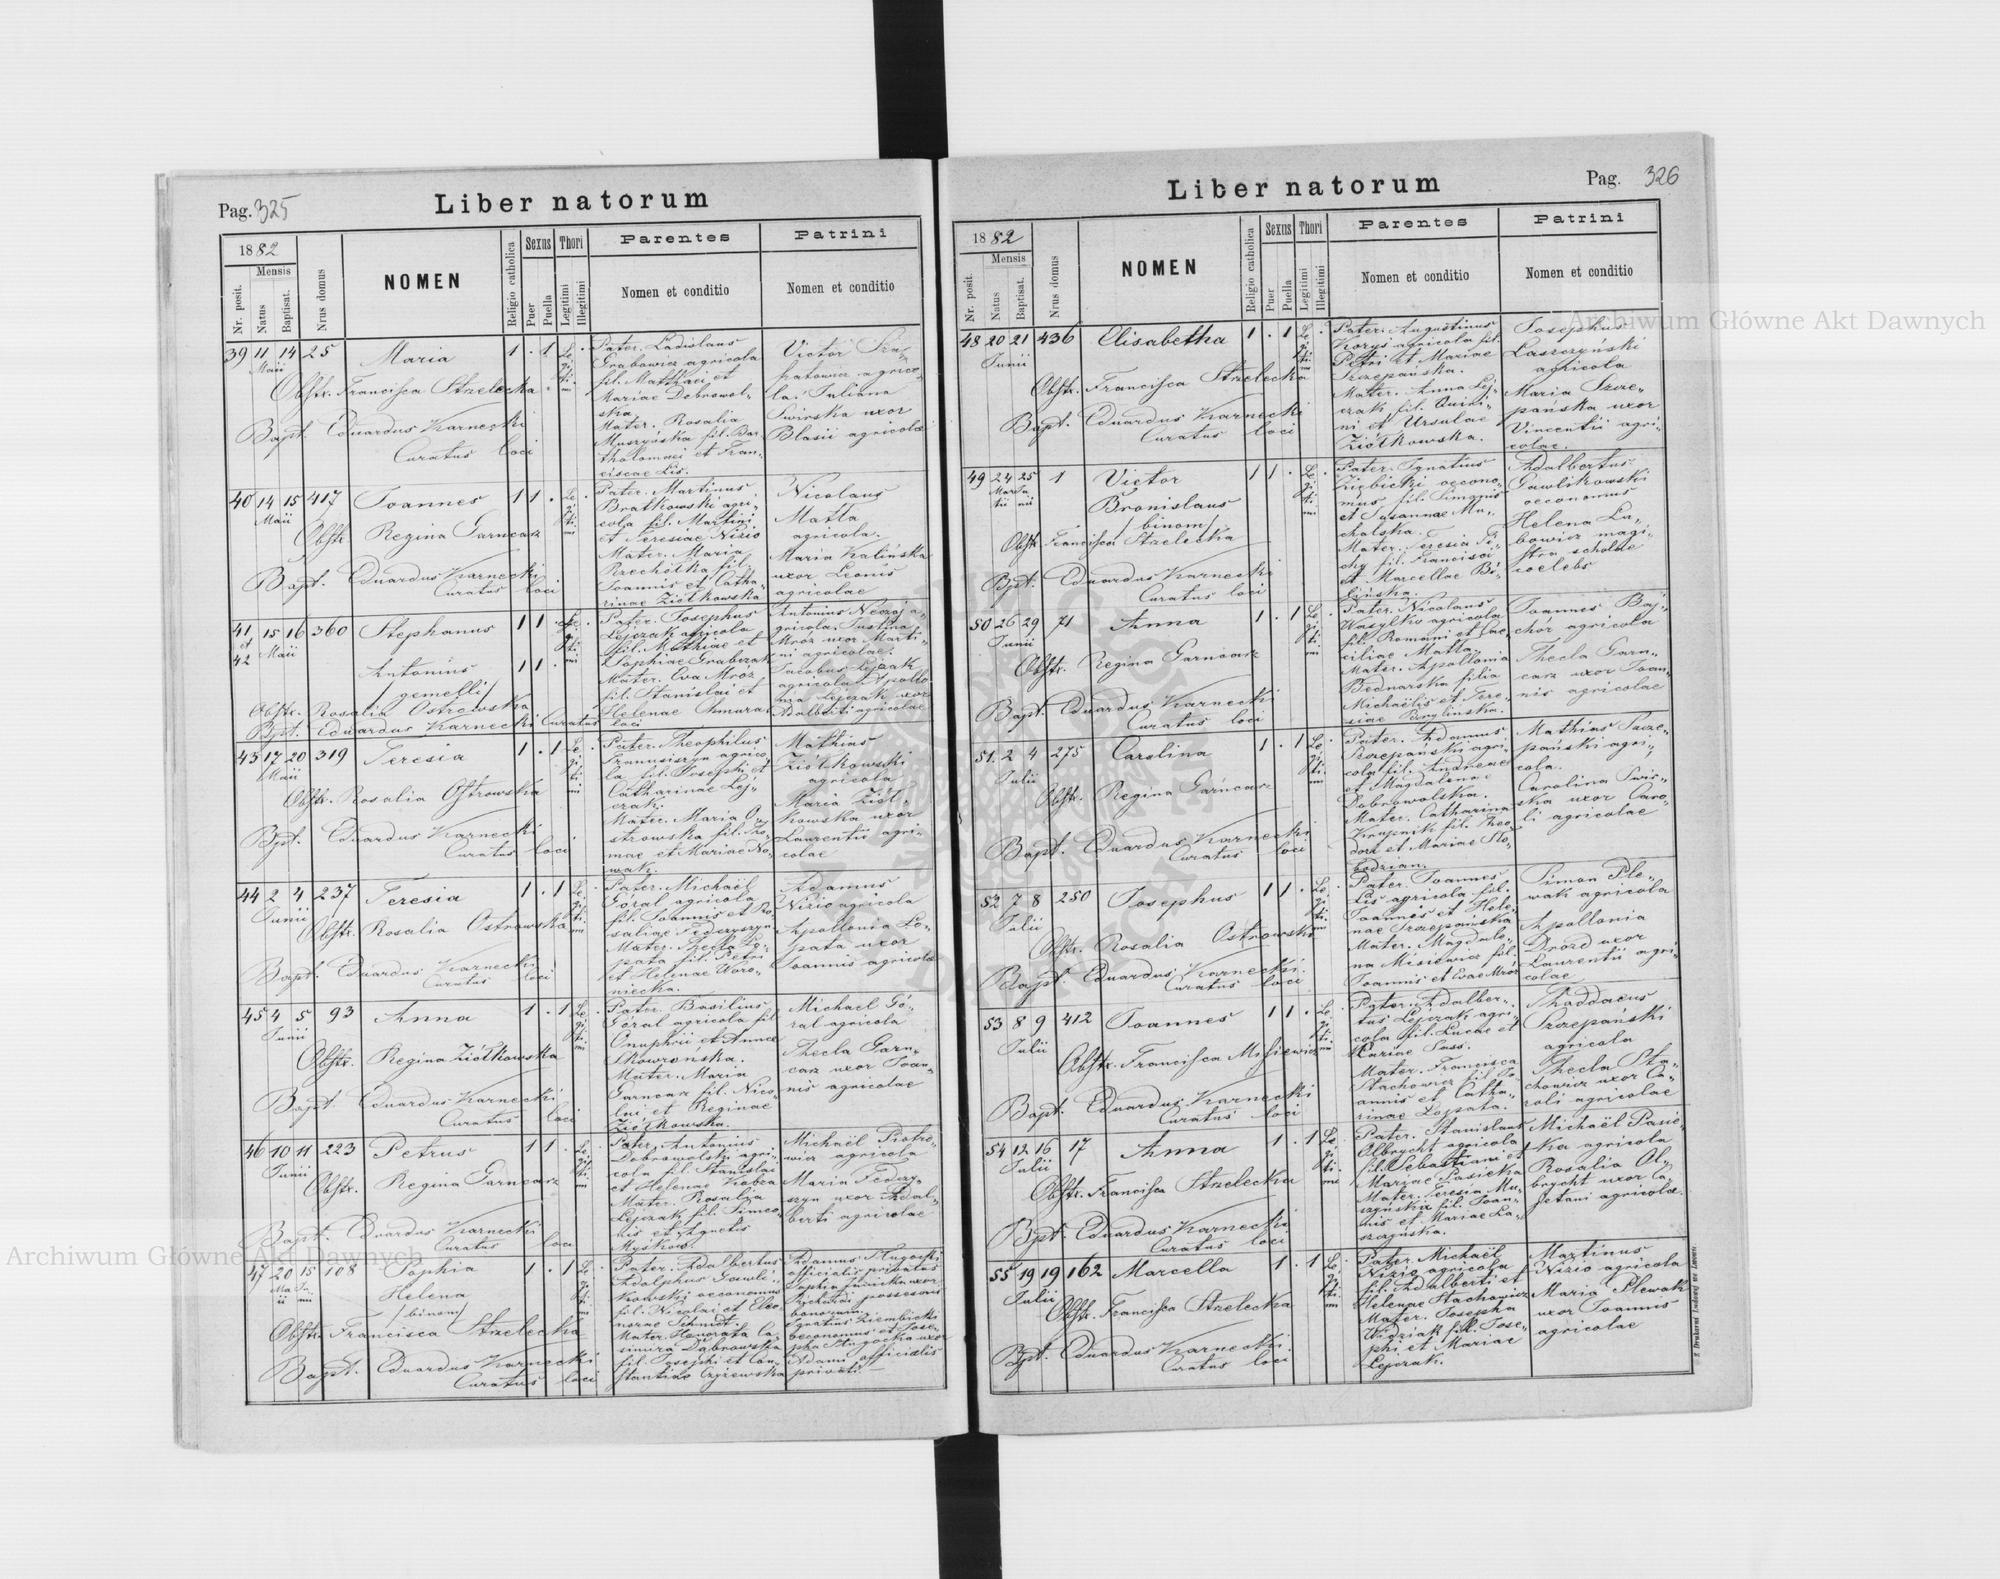 Pag. 325
Liber natorum
1882
Mensis
Nr. posit.
Natus
Baptisat.
Nrus domus
NOMEN
Religio catholica
Sexus
Puer
Puella
Thori
Legitimi
Illegitimi
Parentes
Nomen et conditio
Patrini
Nomen et conditio
39 11 14 25 Maria 1 . 1 Le-
Maii
gi-
ti-
mi
Obstr. Francisca Strzelecka
Bapt. Eduardus Karnecki
Curatus loci
Pater. Ladislaus
Grabowicz agricola
fil. Matthaei et
Mariae Dobrowol-
ska.
Mater. Rosalia
Muszyńska fil. Bar-
tholomaei et Fran-
ciscae Lis.
Victor
agrico-
la. Juliana
Swirska uxor
Blasii agricolae
40 14 15 417 Joannes 1 1 . Le-
Maii
gi-
ti-
mi
Obstr. Regina Garncarz
Bapt. Eduardus Karnecki
Curatus loci
Pater. Martinus
Bratkowski agri-
cola fil. Martini
et Teresiae Nizio
Mater. Maria
Rzechótka fil.
Joannis et Catha-
rinae Ziółkowska
Nicolaus
Matla
agricola.
Maria Kalińska
uxor Leonis
agricolae
41 et 42 15 16 360 Stephanus 1 1 . Le-
Maii
gi-
ti-
mi
Antonius 1 1 .
/gemelli/
Obstr. Rosalia Ostrowska
Bpt. Eduardus Karnecki Curatus loci
Pater. Josephus
Lejczak agricola
fil. Mathiae et
Sophiae Grabczak
Mater. Eva Mróz
fil. Stanislai et
Helenae Chmura.
Antonius a-
gricola. Justina
Mróz uxor Marti-
ni agricolae.
Jacobus Lejczak
agricola. Apollo-
nia Lejczak uxor
Adalberti agricolae
43 17 20 319 Teresia 1 . 1 Le-
Maii
gi-
ti-
mi
Obstr. Rosalia Ostrowska
Bpt. Eduardus Karnecki
Curatus loci
Pater. Theophilus
Franusiszyn agrico-
la fil. Josephi et
Catharinae Lej-
czak.
Mater. Maria O-
strowska fil. Tho-
mae et Mariae No-
wak.
Mathias
Ziółkowski
agricola
Maria Ziół-
kowska uxor
Laurentii agri-
colae
44 2 4 237 Teresia 1 . 1 Le-
Junii
gi-
ti-
mi
Obstr. Rosalia Ostrowska
Bapt. Eduardus Karnecki
Curatus loci
Pater. Michaël
Góral agricola
fil. Joannis et Ro-
saliae Fedyszyn
Mater. Thecla Ło-
pata fil. Petri
et Helenae Woro-
niecka.
Adamus
Nizio agricola
Apollonia Ło-
pata uxor
Joannis agricolae
45 4 5 93 Anna 1 . 1 Le-
Junii
gi-
ti-
mi
Obstr. Regina Ziółkowska
Bapt. Eduardus Karnecki
Curatus loci
Pater. Basilius
Góral agricola fil
Onuphrii et Annae
Skowrońska.
Mater. Maria
Garncarz fil. Nico-
lai et Reginae
Ziółkowska.
Michael Gó-
ral agricola
Thecla Garn-
carz uxor Joan-
nis agricolae
46 10 11 223 Petrus 1 1 . Le-
Junii
gi-
ti-
mi
Obstr. Regina Garncarz
Bapt. Eduardus Karnecki
Curatus loci
Pater. Antonius
Dobrowolski agri-
cola fil. Stanislai
et Helenae Kobza
Mater. Rosalia
Lejczak fil. Simeo-
nis et Agnetis
Myśków.
Michaël Piotro-
wicz agricola
Maria Fedzy-
szyn uxor Adal-
berti agricolae
47 20 15 108 Sophia 1 . 1 Le-
Maii Junii
gi-
ti-
mi
Helena
/binom/
Obstr. Francisca Strzelecka
Bapt. Eduardus Karnecki
Curatus loci
Pater. Adalbertus
Adolphus Gawli-
kowski oeconomus
fil. Nicolai et Eleo-
norae Schmidt.
Mater. Honorata Ca-
simira Dąbrowska
fil. Josephi et Con-
stantiae Czyżewska
Adamus Długocki
officialis privatus
Sophia uxor
possessoris
bonorum.
Ignatius Ziembicki
oeconomus et Jose-
pha Długocka uxor
Adami officialis
privati.
Pag. 326
Liber natorum
1882
Mensis
Nr. posit.
Natus
Baptisat.
Nrus domus
NOMEN
Religio catholica
Sexus
Puer
Puella
Thori
Legitimi
Illegitimi
Parentes
Nomen et conditio
Patrini
Nomen et conditio
48 20 21 436 Elisabetha 1 . 1 Le-
Junii
gi-
ti-
mi
Obstr. Francisca Strzelecka
Bapt. Eduardus Karnecki
Curatus loci
Pater. Augustinus
Koryś agricola fil.
Petri et Mariae
Szczepańska.
Mater. Anna Lej-
czak fil. Quiri-
ni et Ursulae
Ziółkowska.
Josephus
Laszczyński
agricola
Maria Szcze-
pańska uxor
Vincentii agri-
colae.
49 24 25 1 Victor 1 1 . Le-
Martii Junii
gi-
ti-
mi
Bronislaus
/binom/
Obstr. Francisca Strzelecka
Bpt. Eduardus Karnecki
Curatus loci
Pater. Ignatius
Ziębicki oecono-
mus fil. Simonis
et Susannae Mu-
chalska.
Mater. Teresia
fil. Francisci
et Marcellae Bi-
lińska.
Adalbertus
Gawlikowski
oeconomus
Helena La-
bowicz magi-
stra scholae
coelebs
50 26 29 71 Anna 1 . 1 Le-
Junii
gi-
ti-
mi
Obstr. Regina Garncarz
Bapt. Eduardus Karnecki
Curatus loci
Pater. Nicolaus
Wasylko agricola
fil. Romani et Cae-
ciliae Matla
Mater. Apollonia
Bednarska filia
Michaëlis et Tere-
siae
Joannes Baj-
chór agricola
Thecla Garn-
carz uxor Joan-
nis agricolae
51. 2 4 275 Carolina 1 . 1 Le-
Julii
gi-
ti-
mi
Obstr. Regina Garncarz
Bapt. Eduardus Karnecki
Curatus loci
Pater. Adamus
Szczepański agri-
cola fil. Andreae
et Magdalenae
Dobrowolska.
Mater. Catharina
Krupnik fil. Theo-
dori et Mariae Sło-
bodzian.
Mathias Szcze-
pański agri-
cola.
Carolina Swir-
ska uxor Caro-
li agricolae
52 7 8 250 Josephus 1 1 . Le-
Julii
gi-
ti-
mi
Obstr. Rosalia Ostrowska
Bapt. Eduardus Karnecki
Curatus loci
Pater. Joannes
Lis agricola fil.
Joannis et Hele-
nae Szczepańska
Mater. Magdale-
na Misiewicz fil.
Joannis et Evae Mróz
Simon Ple-
wak agricola
Apollonia
Drozd uxor
Laurentii agri-
colae
53 8 9 412 Joannes 1 1 . Le-
Julii
gi-
ti-
mi
Obstr. Francisca Misiewicz
Bapt. Eduardus Karnecki
Curatus loci
Pater. Adalber-
tus Lejczak agri-
cola fil. Lucae et
Mariae Suss.
Mater. Francisca
Stachowicz fil. Jo-
annis et Catha-
rinae Łopata.
Thaddaeus
Szczepański
agricola
Thecla Sta-
chowicz uxor Ca-
roli agricolae
54 12 16 17 Anna 1 . 1 Le-
Julii
gi-
ti-
mi
Obstr. Francisca Strzelecka
Bpt. Eduardus Karnecki
Curatus loci
Pater. Stanislaus
Olbrycht agricola
fil. Sebastiani et
Mariae Pasieka
Mater. Teresia Mu-
szyńska fil. Joan-
nis et Mariae La-
szczyńska.
Michaël Pasie-
ka agricola
Rosalia Ol-
brycht uxor Ca-
jetani agricolae.
55 19 19 162 Marcella 1 . 1 Le-
Julii
gi-
ti-
mi
Obstr. Francisca Strzelecka
Bpt. Eduardus Karnecki
Curatus loci
Pater. Michaël
Nizio agricola
fil. Adalberti et
Helenae Stachowicz
Mater. Josepha
Widziak fil. Jose-
phi et Mariae
Lejczak.
Martinus
Nizio agricola
Maria Plewak
uxor Joannis
agricolae
Z Drukarni Ludowej we Lwowie.
Archiwum Główne Akt Dawnych
Archiwum Główne Akt Dawnych